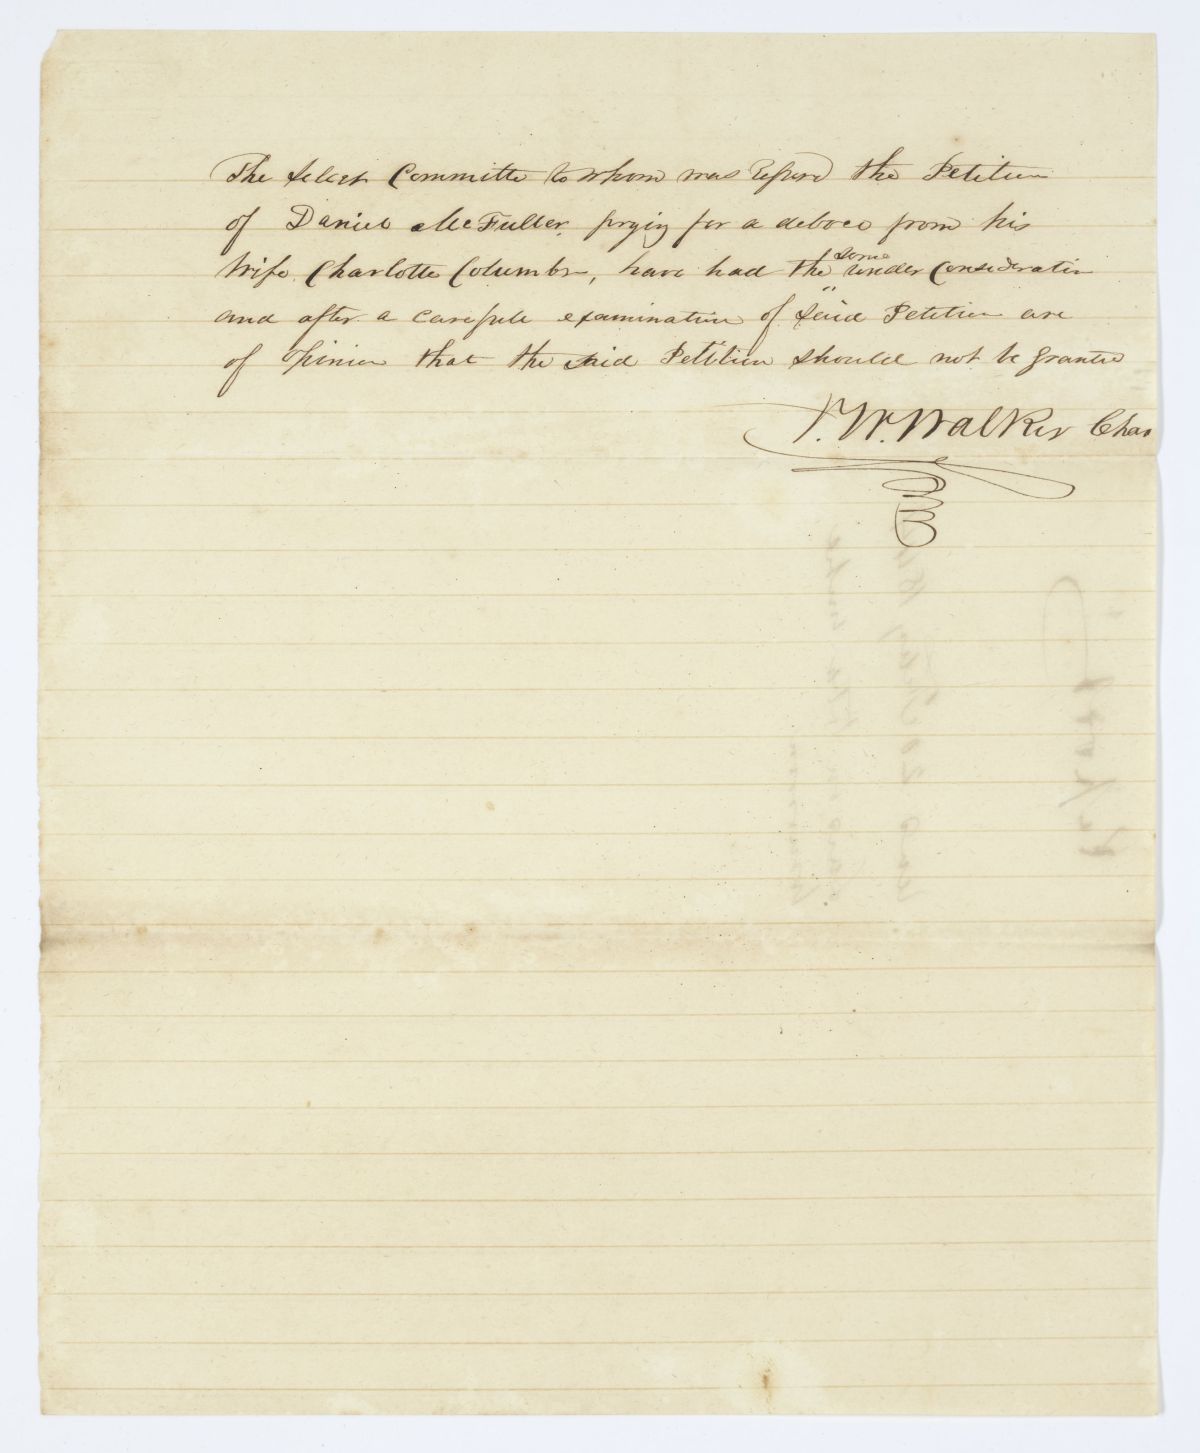 The Select Committe to whom was Refered the Petition
of Daniel McFuller. prying for a devoce from his
Wife Charlotte Columbr, have had the same under Consideration
and after a carefule examination of Said Petition are
of Opinion that the Said Petition should not be Granted
J. W. Walker Char
Report